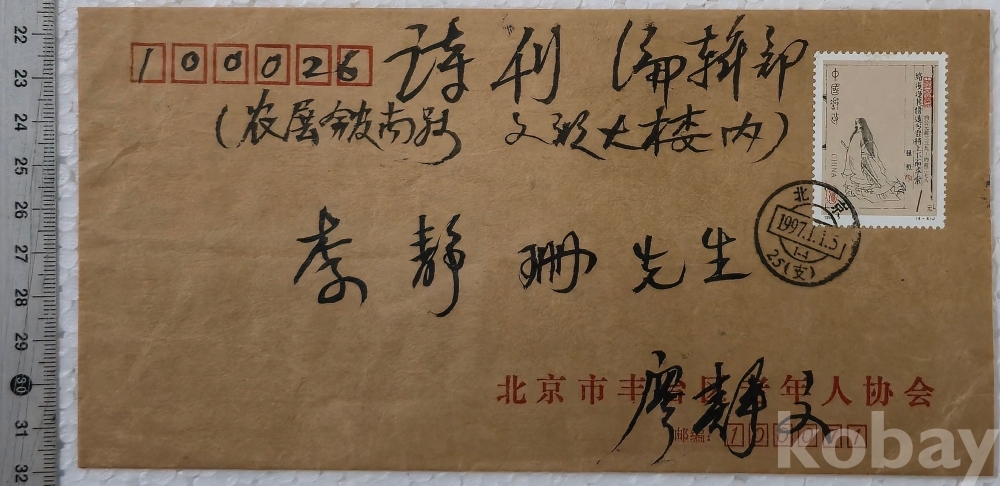 100026 诗刊编辑部
(农展馆南路 文联大楼内)
李静珊先生
中国邮政
CHINA
1元
北京
1997.1.1.5
1-1
25(支)
北京市丰台区老年人协会
廖静文
邮编:
kobay
22
23
24
25
26
27
28
29
30
31
32